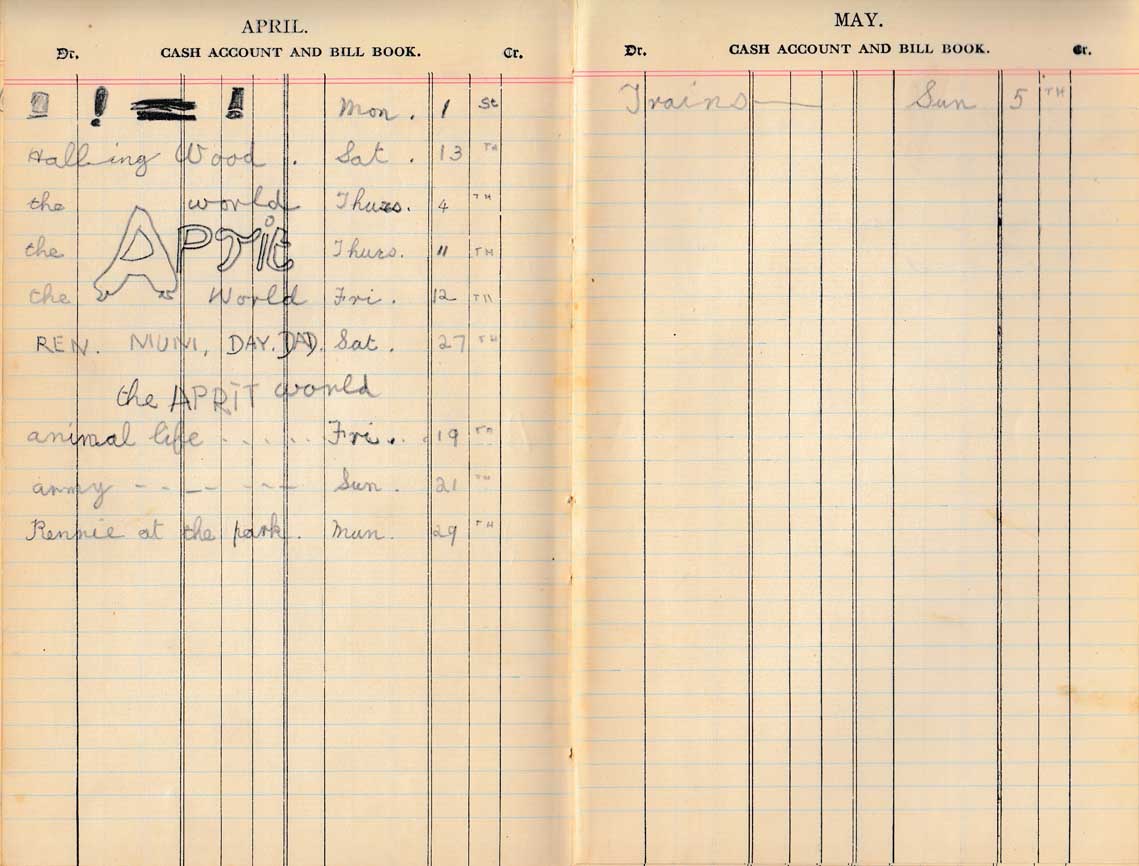 APRIL.
Dr. CASH ACCOUNT AND BILL BOOK. Cr.
! ! Mon. 1 st
Halling Wood . Sat . 13 TH
the world Thurs. 4 TH
the APRIT Thurs. 11 TH
the World Fri. 12 TH
REN. MUM, DAY. DAD. Sat. 27 TH
the APRIT world
animal life . . . . . Fri. . 19 TH
army - - - - - - Sun. 21 TH
Rennie at the park. Mun. 29 TH
MAY.
Dr. CASH ACCOUNT AND BILL BOOK. Cr.
Trains— Sun 5 TH